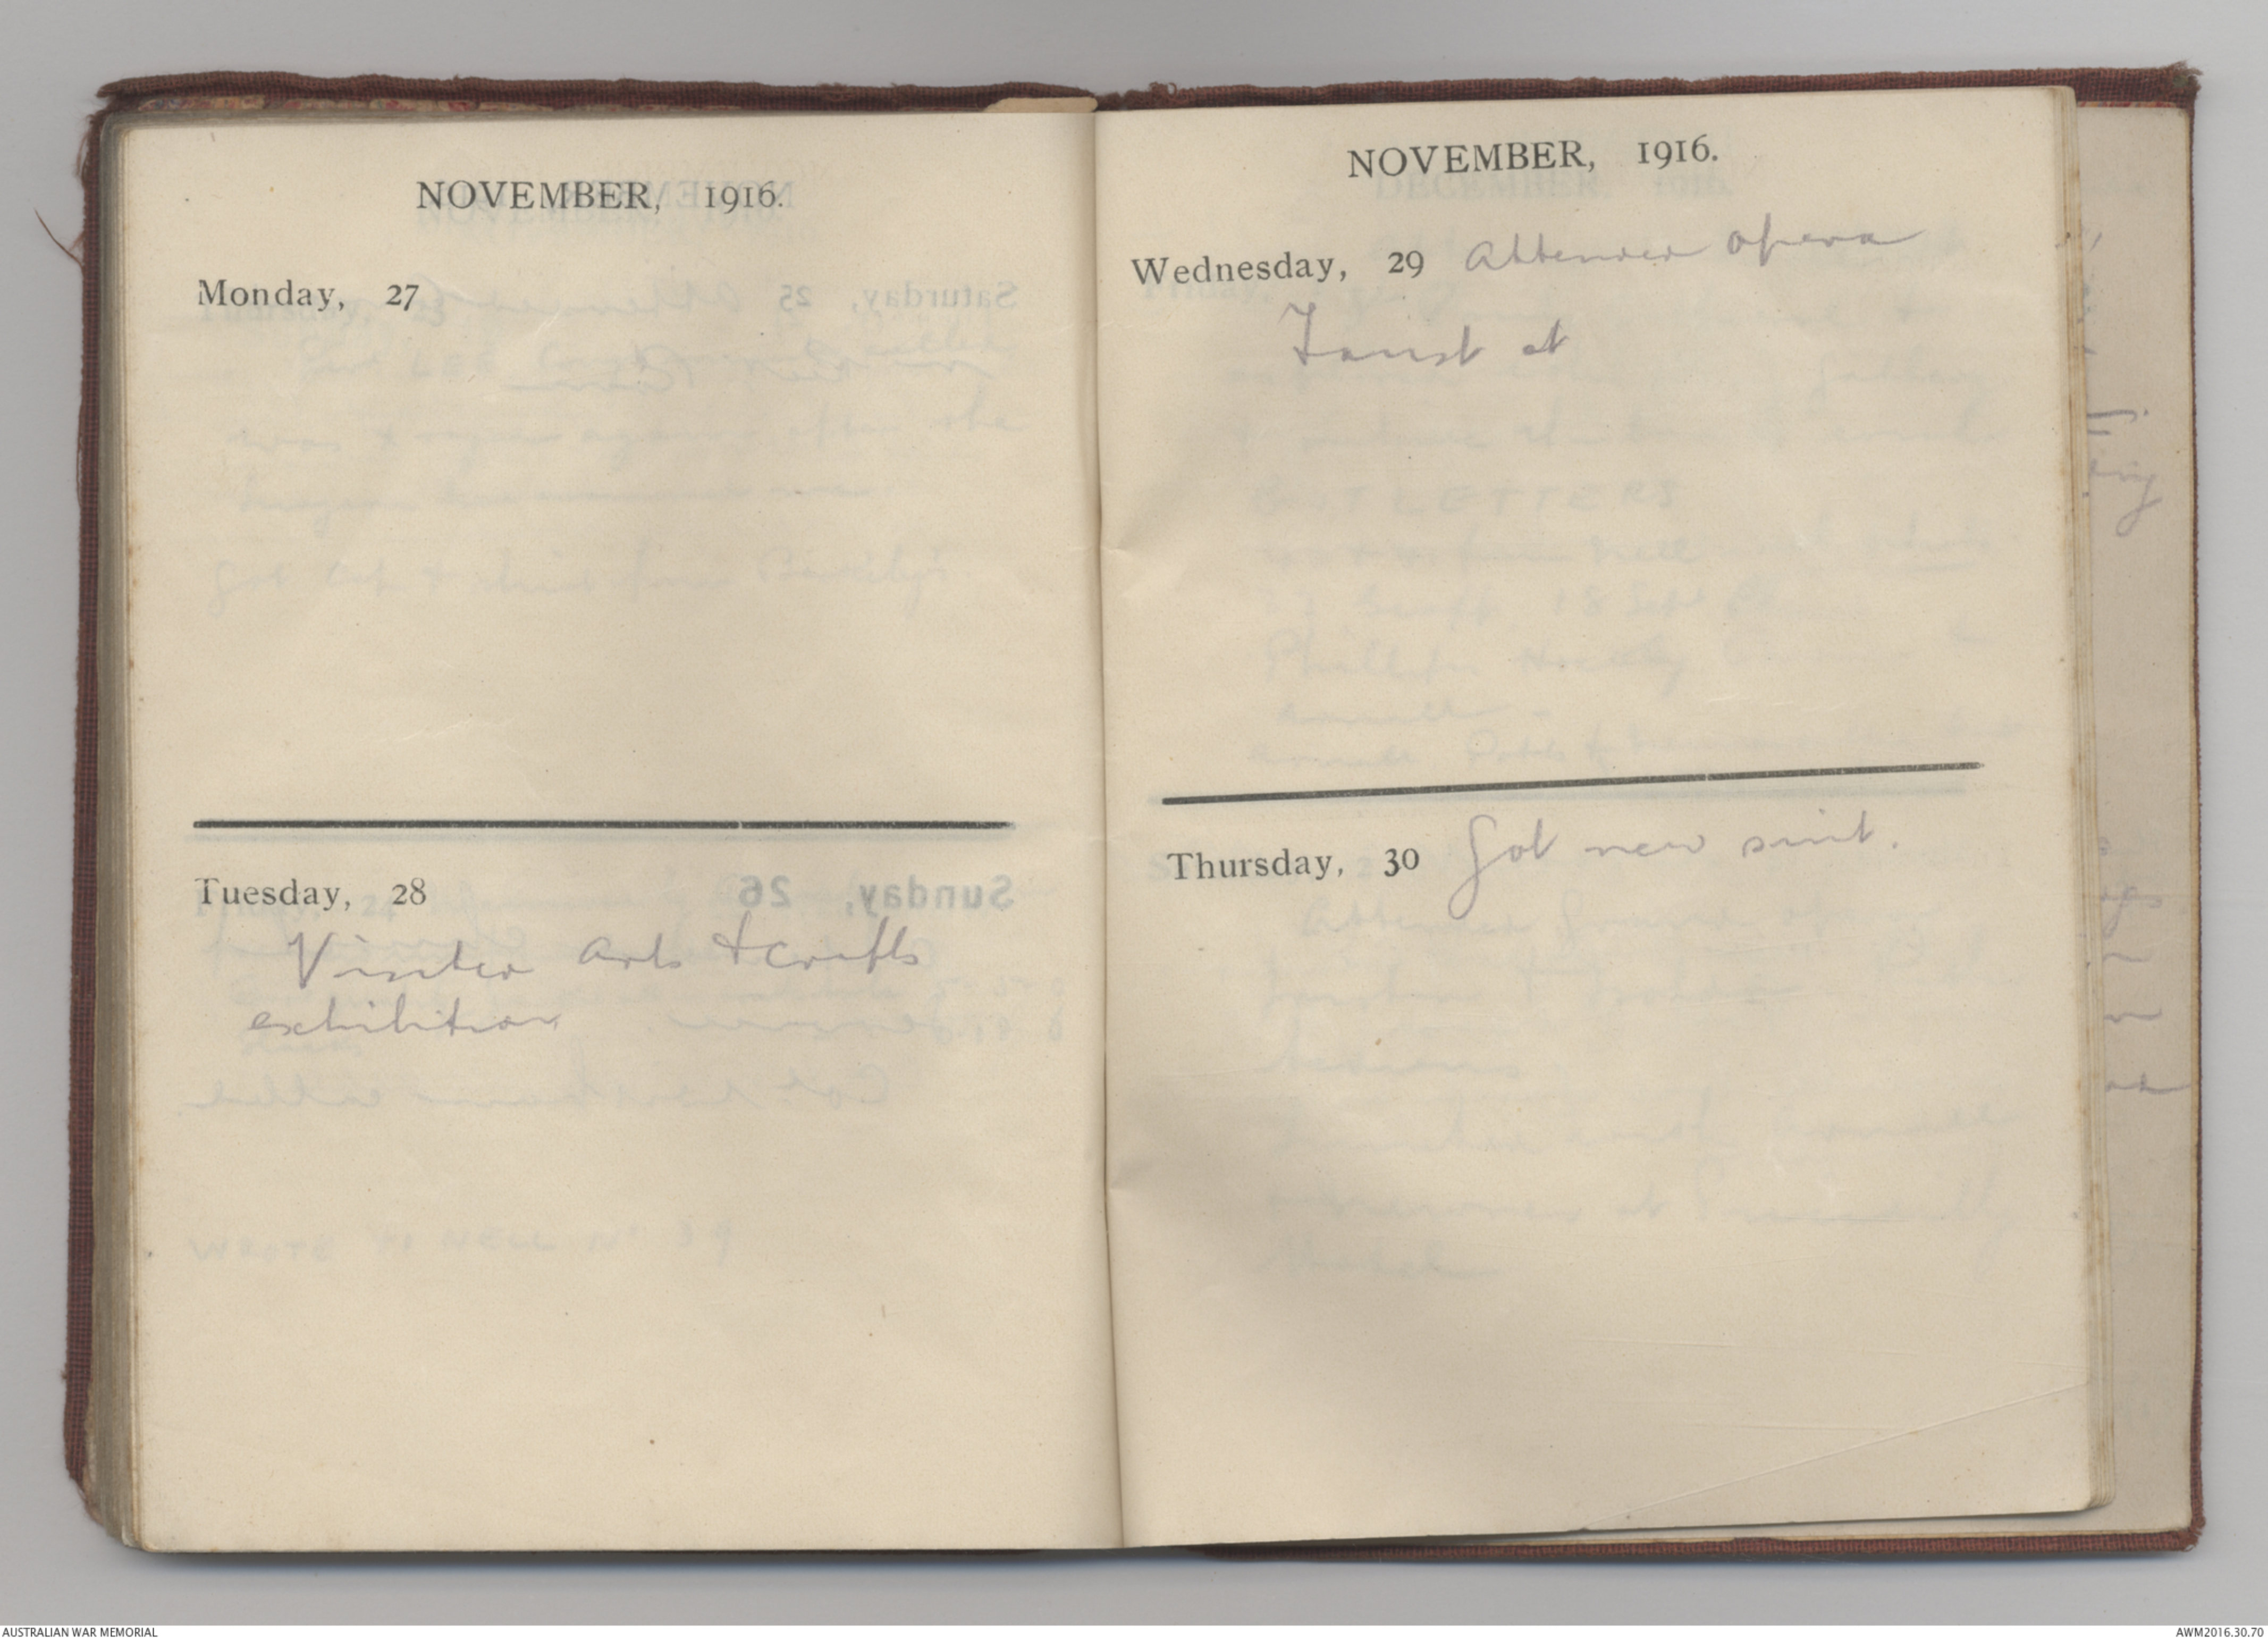 NOVEMBER, 1916.
Monday, 27
Tuesday, 28
Visited Arts & Crafts
exhibition
NOVEMBER, 1916.
Wednesday, 29 Attended opera
Faust at
Thursday, 30 Got new suit.
AUSTRALIAN WAR MEMORIAL
AWM2016.30.70